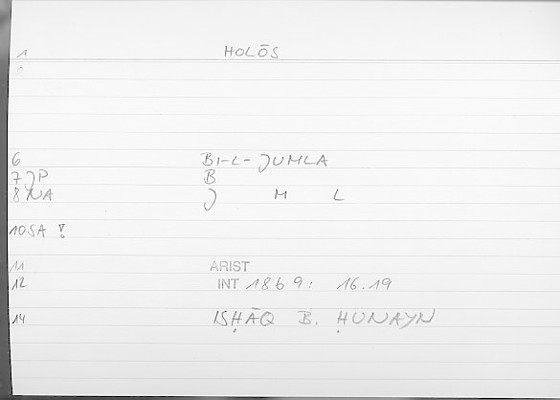 1 HOLŌS
6 BI-L-JUMLA
7 JP B
8 NA J M L
10 SA
11 ARIST
12 INT 1869: 16.19
14 ISḤĀQ B. ḤUNAYN